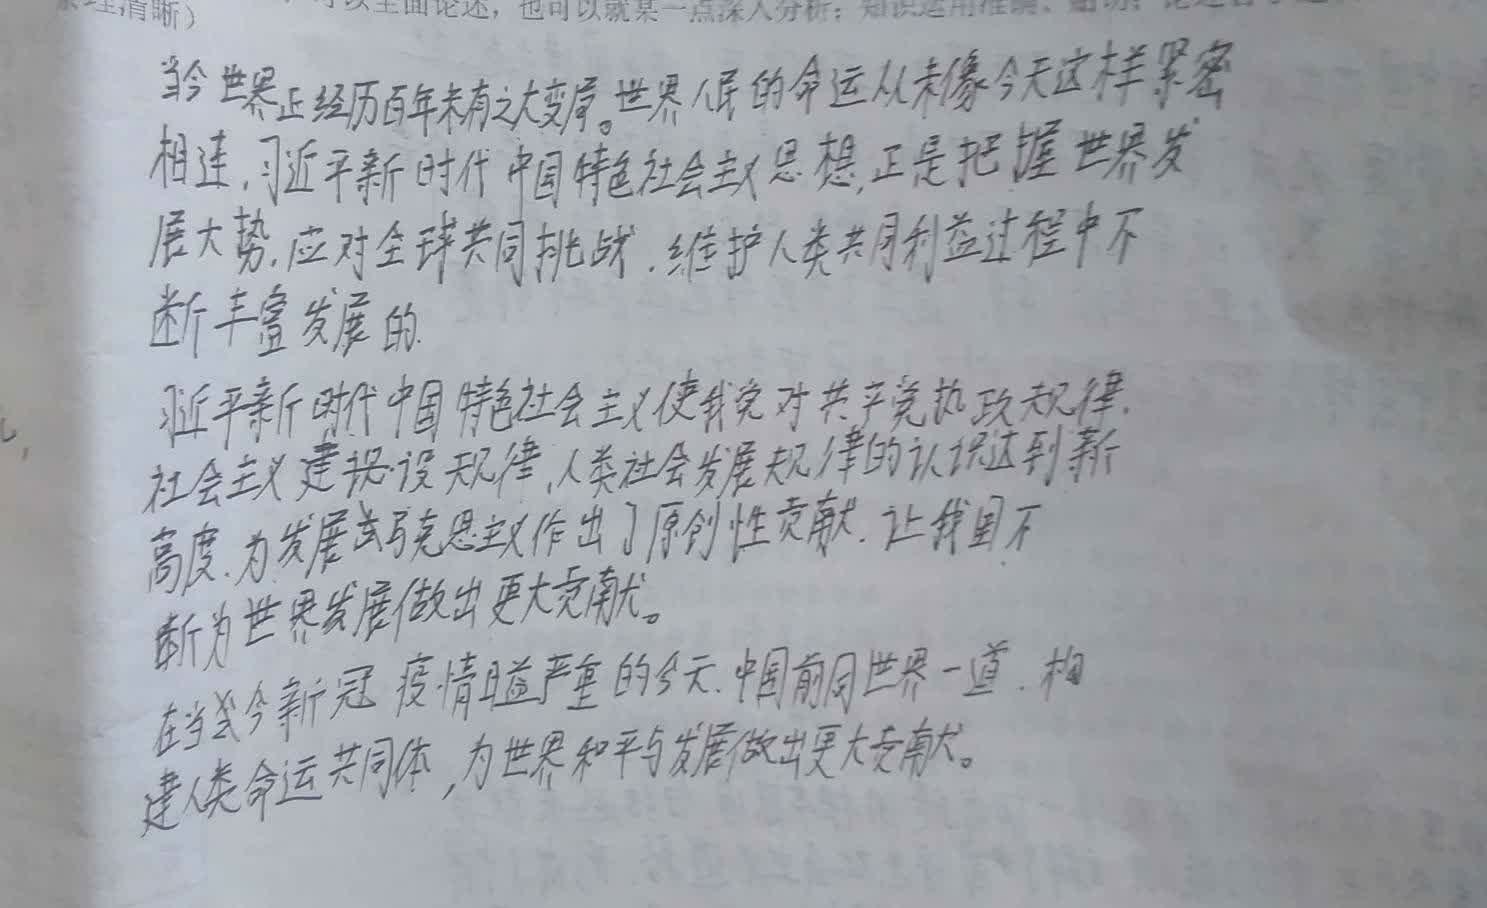 可以全面论述，也可以就某一点深入分析；知识运用准确、贴切；论
条理清晰）
当今世界正经历百年未有之大变局。世界人民的命运从未像今天这样紧密
相连，习近平新时代中国特色社会主义思想，正是把握世界发
展大势，应对全球共同挑战，维护人类共同利益过程中不
断丰富发展的.
习近平新时代中国特色社会主义使我党对共产党执政规律，
社会主义建设规律，人类社会发展规律的认识达到新
高度，为发展马克思主义作出了原创性贡献，让我国不
断为世界发展做出更大贡献。
在当今新冠疫情日益严重的今天，中国前同世界一道，构
建人类命运共同体，为世界和平与发展做出更大贡献。